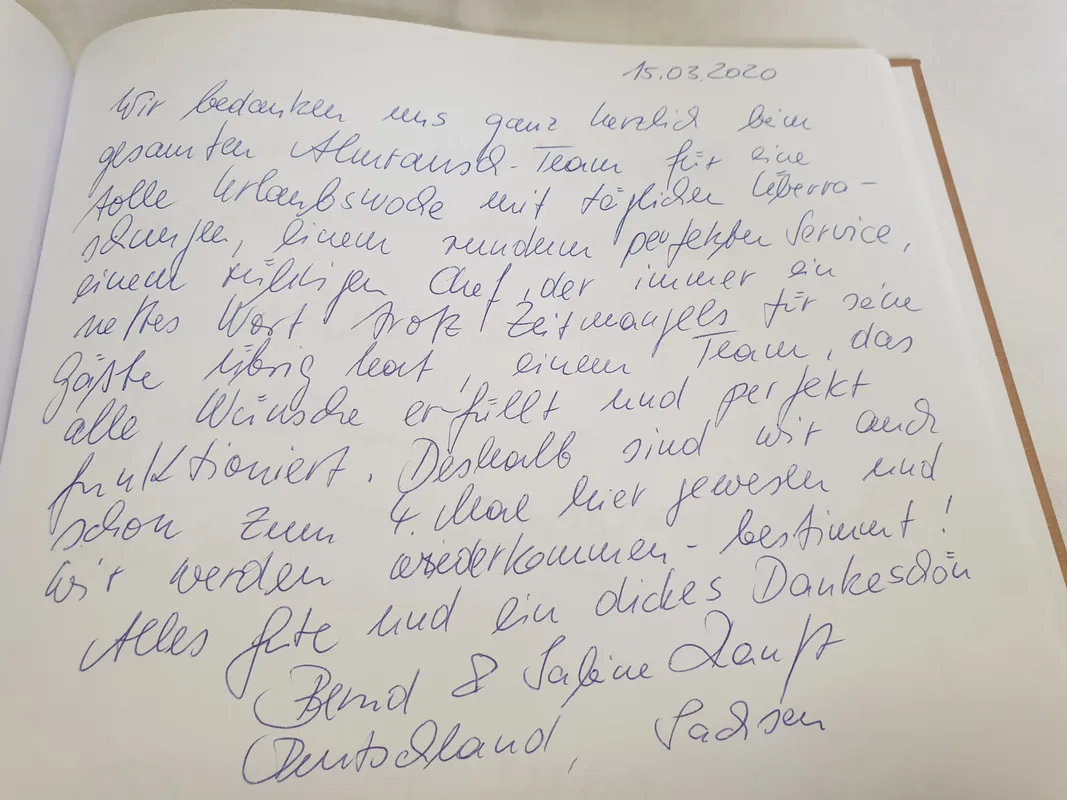 15.03.2020
Wir bedanken uns ganz herzlich beim
gesamten Almrausch-Team für eine
tolle Urlaubswoche mit täglichen Überra-
schungen, einem rundum perfekten Service,
einem rührigen Chef, der immer ein
nettes Wort trotz Zeitmangels für seine
Gäste übrig hat, einem Team, das
alle Wünsche erfüllt und perfekt
funktioniert. Deshalb sind wir auch
schon zum 4. Mal hier gewesen und
wir werden wiederkommen - bestimmt!
Alles Gute und ein dickes Dankeschön
Bernd & Sabine
Deutschland, Sachsen